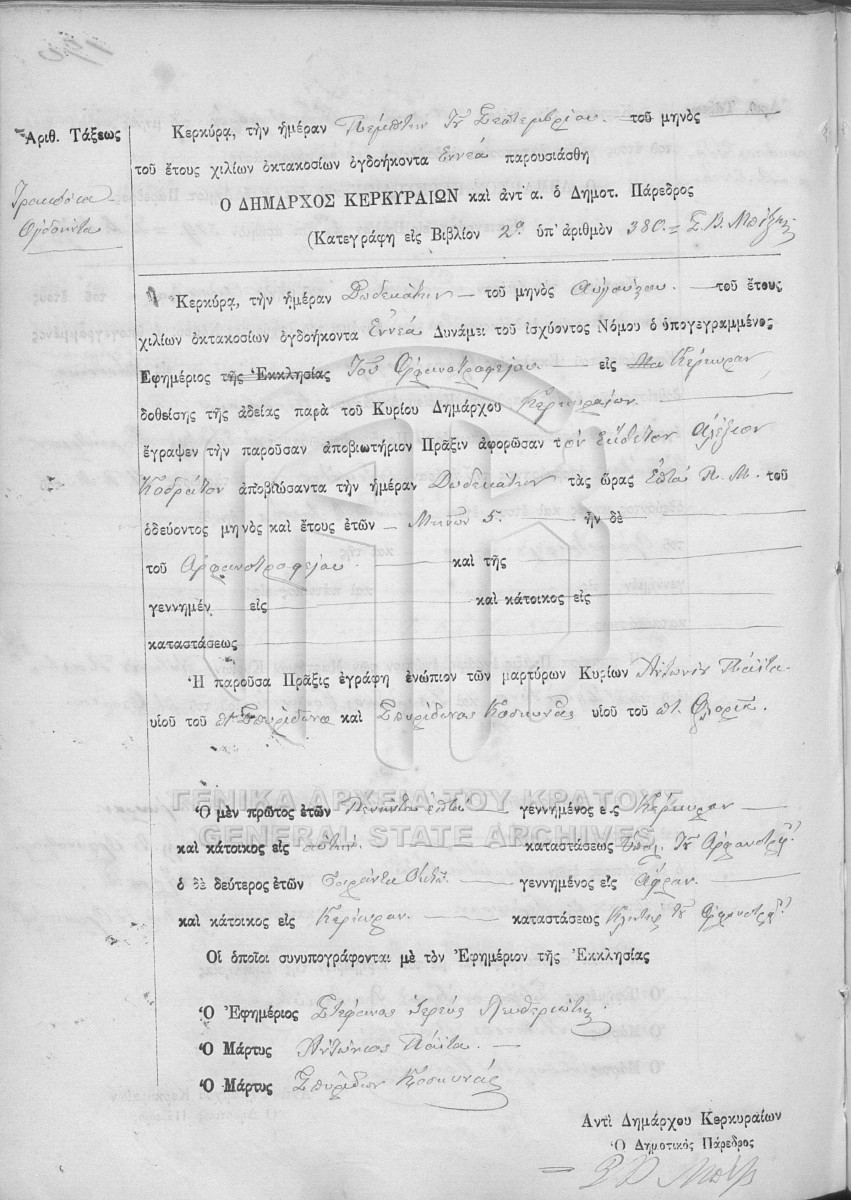 Ἀριθ. Τάξεως
Τριακόσια
Ὀγδοῆντα
Κερκύρᾳ, τὴν ἡμέραν Πέμπτην Τοῦ Σεπτεμβρίου. τοῦ μηνὸς
τοῦ ἔτους χιλίων ὀκτακοσίων ὀγδοήκοντα Ἐννέα παρουσιάσθη
Ὁ ΔΗΜΑΡΧΟΣ ΚΕΡΚΥΡΑΙΩΝ καὶ ἀντ᾽ α. ὁ Δημοτ. Πάρεδρος
(Κατεγράφη εἰς Βιβλίον 2ο ὑπ᾽ ἀριθμὸν 380.=
Κερκύρᾳ, τὴν ἡμέραν Δωδεκάτην τοῦ μηνὸς Αὐγούστου. τοῦ ἔτους
χιλίων ὀκτακοσίων ὀγδοήκοντα Ἐννέα Δυνάμει τοῦ ἰσχύοντος Νόμου ὁ ὑπογεγραμμένος
Ἐφημέριος τῆς Ἐκκλησίας Τοῦ Ὀρφανοτροφείου εἰς Κέρκυραν
δοθείσης τῆς ἀδείας παρὰ τοῦ Κυρίου Δημάρχου Κερκυραίων.
ἔγραψεν τὴν παροῦσαν ἀποβιωτήριον Πρᾶξιν ἀφορῶσαν τὸν Ἔκθετον Ἀλέξιον
Κοδράτον ἀποβιώσαντα τὴν ἡμέραν Δωδεκάτην τὰς ὥρας Ἑπτά Π. Μ. τοῦ
ὁδεύοντος μηνὸς καὶ ἔτους ἐτῶν Μηνῶν 5. ἦν δὲ
τοῦ Ὀρφανοτροφείου. καὶ τῆς
γεννημέν εἰς καὶ κάτοικος εἰς
καταστάσεως
Ἡ παροῦσα Πρᾶξις ἐγράφη ἐνώπιον τῶν μαρτύρων Κυρίων Ἀντωνίου Πάϊτα
υἱοῦ τοῦ Σπυρίδωνα καὶ Σπυρίδωνος Κοσκυνᾶς υἱοῦ τοῦ π.
ΓΕΝΙΚΑ ΑΡΧΕΙΑ ΤΟΥ ΚΡΑΤΟΥΣ
GENERAL STATE ARCHIVES
Ὁ μὲν πρῶτος ἐτῶν Πενήντα ἑπτά γεννημένος ε.ς Κέρκυραν
καὶ κάτοικος εἰς αὐτήν. καταστάσεως Ὑπάλ. Τοῦ Ὀρφανοτρφ.
ὁ δὲ δεύτερος ἐτῶν Σαράντα Ὀκτώ. γεννημένος εἰς
καὶ κάτοικος εἰς Κέρκυραν. καταστάσεως Κλητὴρ τοῦ Ὀρφανοτρφ.
Οἱ ὁποῖοι συνυπογράφονται μὲ τὸν Ἐφημέριον τῆς Ἐκκλησίας
Ὁ Ἐφημέριος Στέφανος Ἱερεύς Λευθεριώτης
Ὁ Μάρτυς Ἀντώνιος Πάϊτα.
Ὁ Μάρτυς Σπυρίδων Κοσκυνάς
Ἀντὶ Δημάρχου Κερκυραίων
Ὁ Δημοτικὸς Πάρεδρος